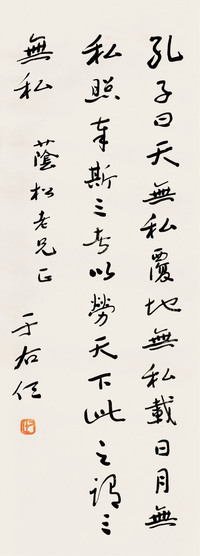 孔子曰天無私覆地無私載日月無
私照奉斯三者以勞天下此之謂三
無私
蔭松老兄正
于右任